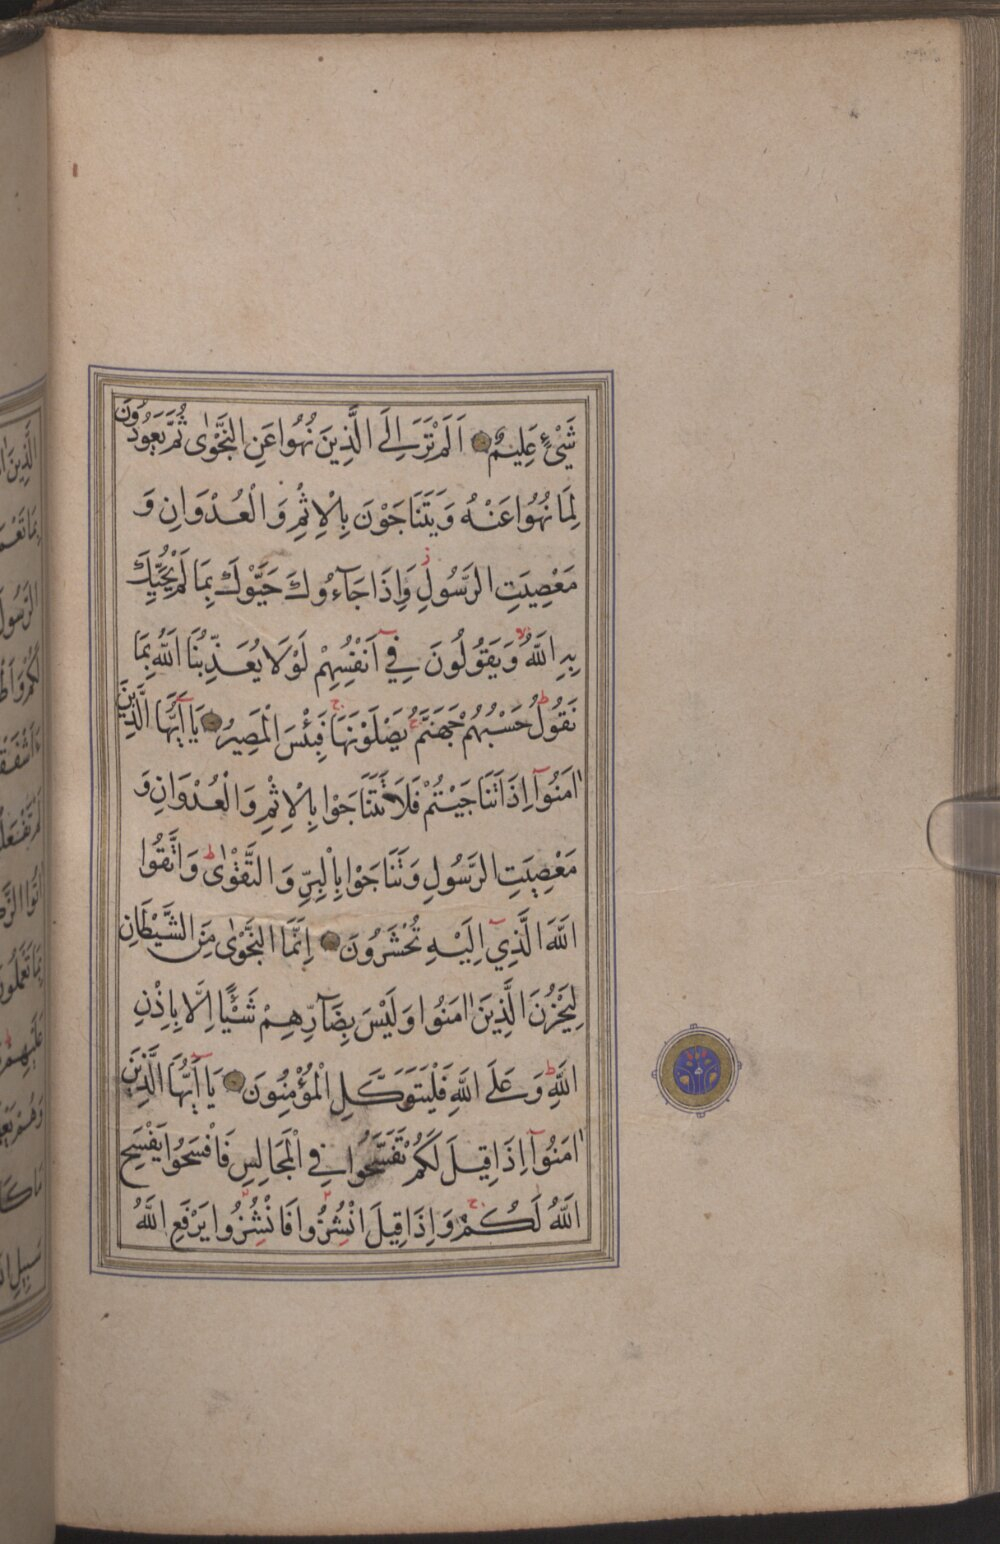 شَيْءٍ عَلِيمٌ اَلَمْ تَرَ اِلَى الَّذِينَ نُهُوا عَنِ النَّجْوٰى ثُمَّ يَعُودُونَ
لِمَا نُهُوا عَنْهُ وَيَتَنَاجَوْنَ بِالْاِثْمِ وَالْعُدْوَانِ وَ
مَعْصِيَتِ الرَّسُولِ وَاِذَا جَآءُوكَ حَيَّوْكَ بِمَا لَمْ يُحَيِّكَ
بِهِ اللّٰهُ وَيَقُولُونَ فِي اَنْفُسِهِمْ لَوْلَا يُعَذِّبُنَا اللّٰهُ بِمَا
نَقُولُ حَسْبُهُمْ جَهَنَّمُ يَصْلَوْنَهَا فَبِئْسَ الْمَصِيرُ يَا اَيُّهَا الَّذِينَ
اٰمَنُوا اِذَا تَنَاجَيْتُمْ فَلَا تَتَنَاجَوْا بِالْاِثْمِ وَالْعُدْوَانِ وَ
مَعْصِيَتِ الرَّسُولِ وَتَنَاجَوْا بِالْبِرِّ وَالتَّقْوٰى وَاتَّقُوا
اللّٰهَ الَّذِي اِلَيْهِ تُحْشَرُونَ اِنَّمَا النَّجْوٰى مِنَ الشَّيْطَانِ
لِيَحْزُنَ الَّذِينَ اٰمَنُوا وَلَيْسَ بِضَآرِّهِمْ شَيْئًا اِلَّا بِاِذْنِ
اللّٰهِ وَعَلَى اللّٰهِ فَلْيَتَوَكَّلِ الْمُؤْمِنُونَ يَا اَيُّهَا الَّذِينَ
اٰمَنُوا اِذَا قِيلَ لَكُمْ تَفَسَّحُوا فِي الْمَجَالِسِ فَافْسَحُوا يَفْسَحِ
اللّٰهُ لَكُمْ وَاِذَا قِيلَ انْشُزُوا فَانْشُزُوا يَرْفَعِ اللّٰهُ